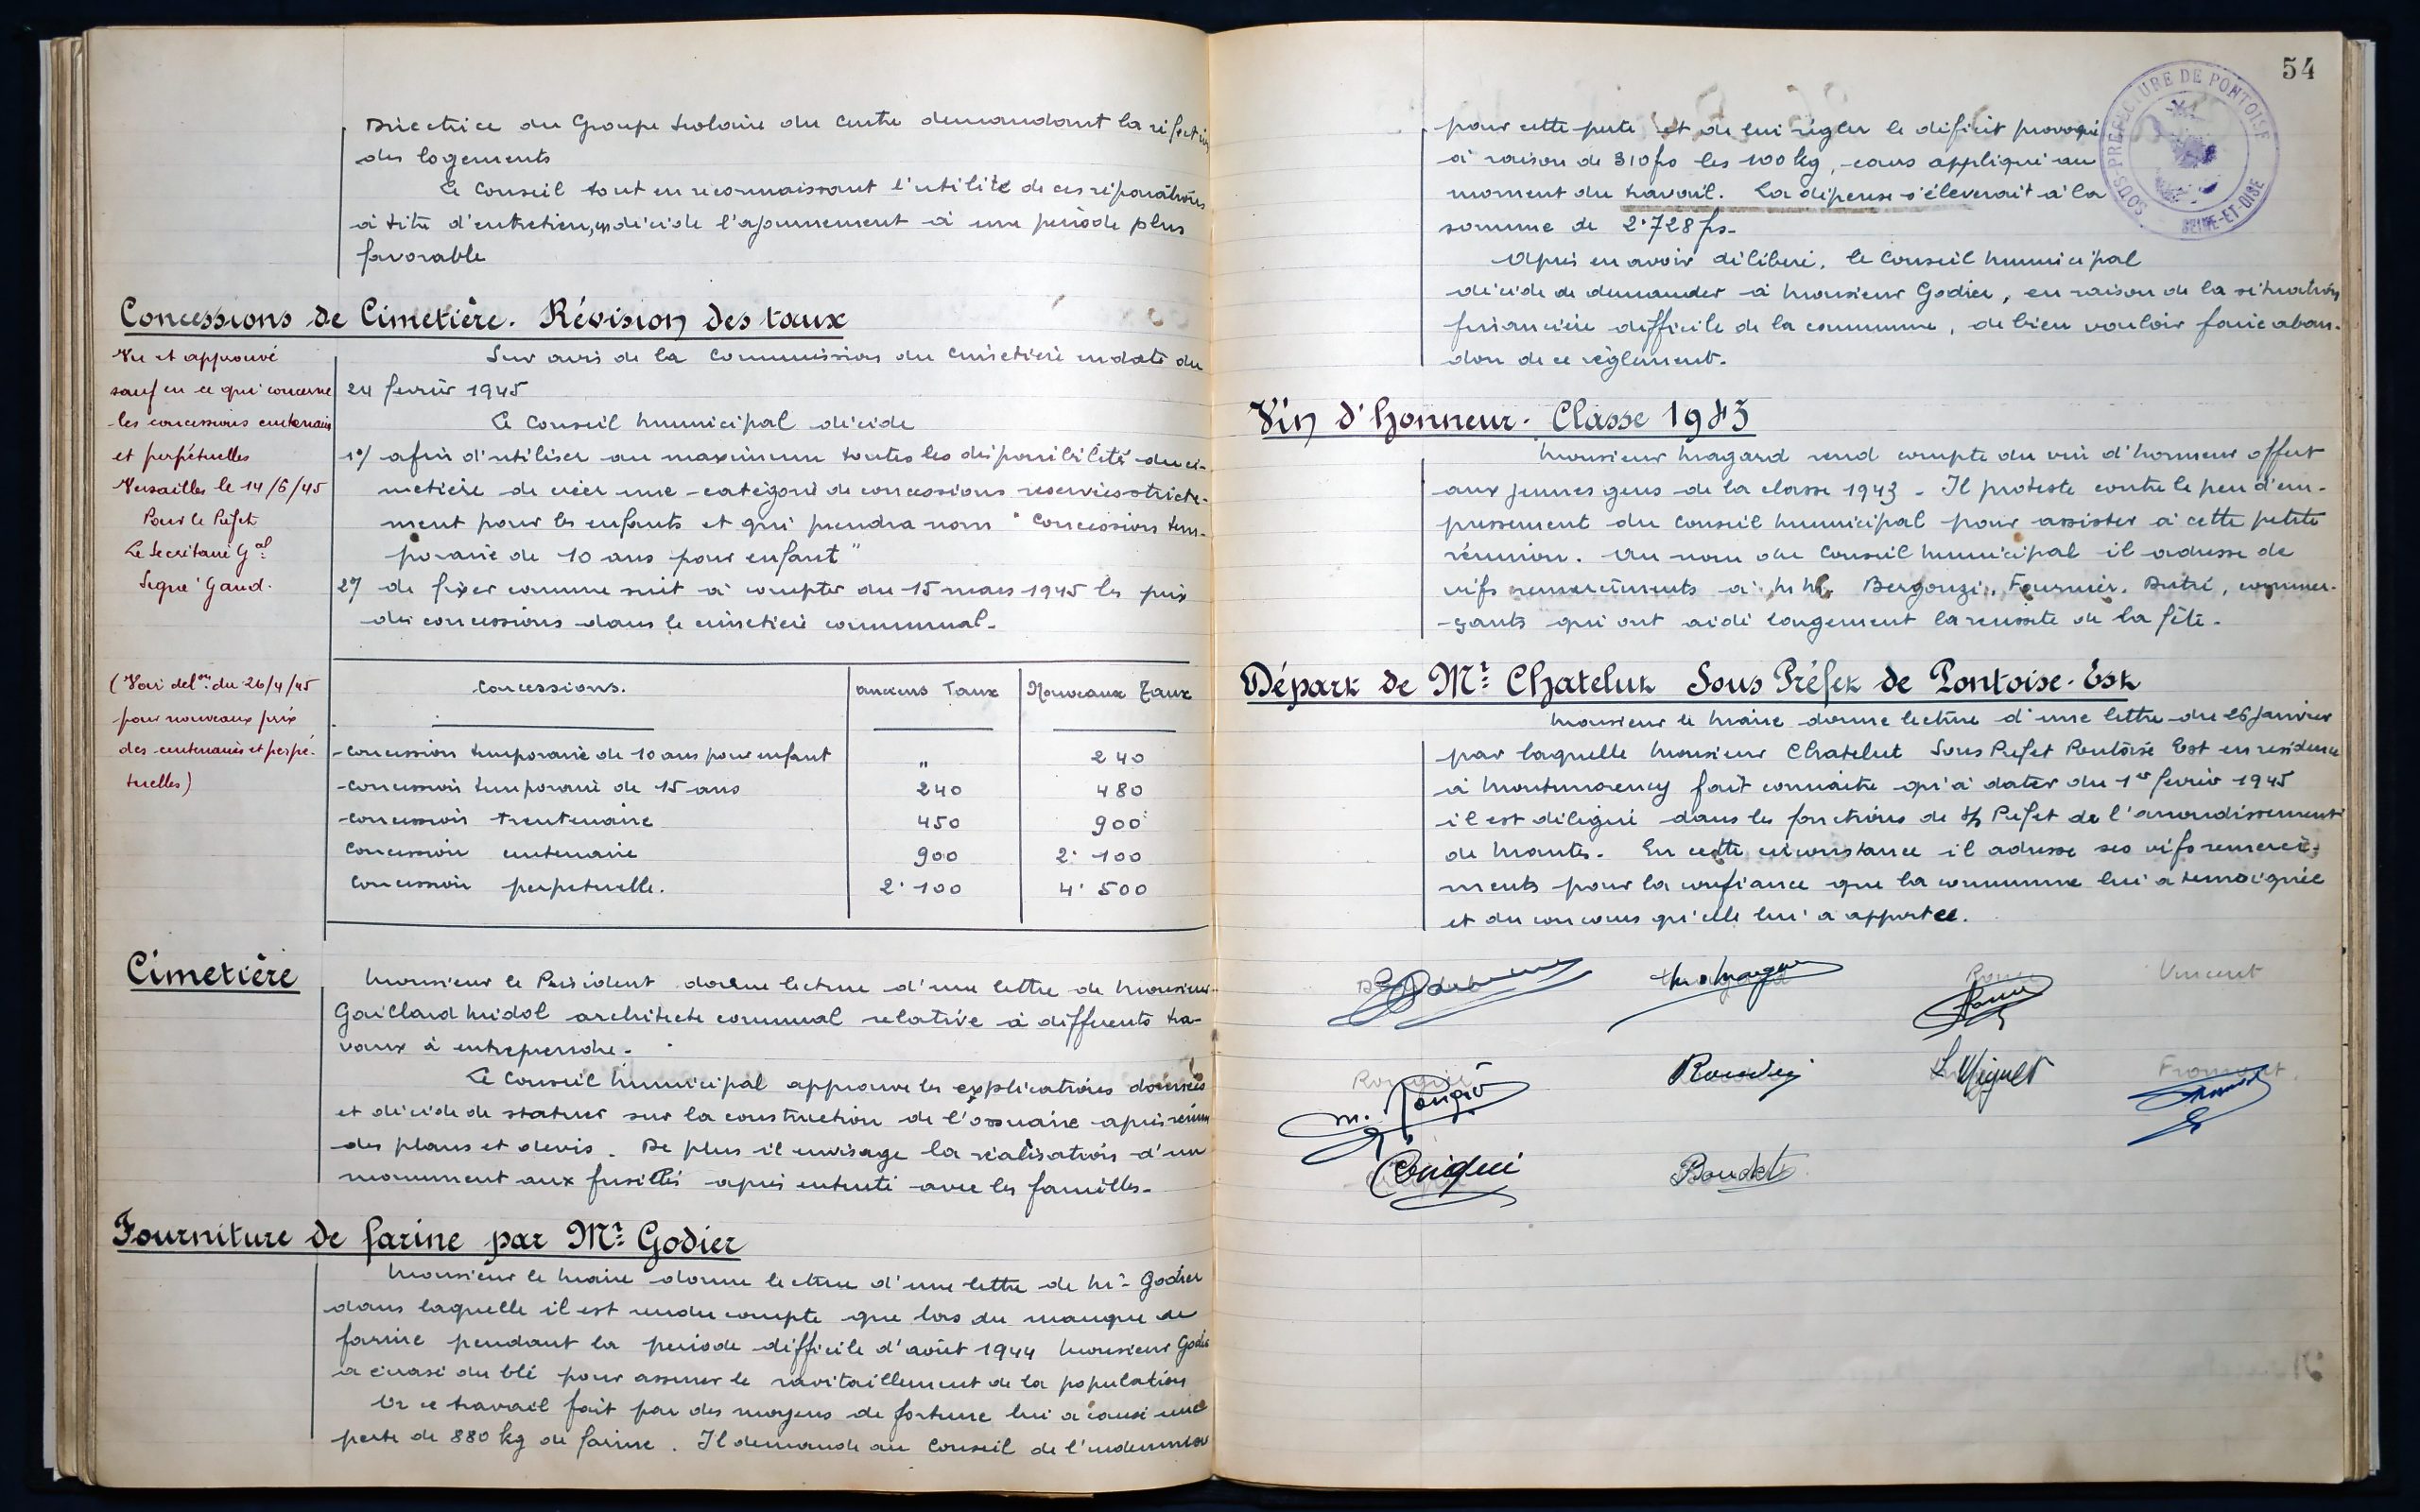 Directrice du Groupe Scolaire du Centre demandant la réfection
des logements
Le Conseil tout en reconnaissant l'utilité de ces réparations
à titre d'entretien, en décide l'ajournement à une période plus
favorable
Concessions de Cimetière. Révision des taux
Vu et approuvé
sauf en ce qui concerne
les concessions centenaires
et perpétuelles
Versailles le 14/6/45
Pour le Préfet
Le Secrétaire Gal
Signé Gaud.
(Voir delon du 26/4/45
pour nouveaux prix
des centenaires et perpé-
tuelles)
Sur avis de la Commission du Cimetière en date du
24 février 1945
Le Conseil Municipal décide
1°/ afin d'utiliser au maximum toutes les disponibilités du ci-
metière de créer une catégorie de concessions reservées stricte-
ment pour les enfants et qui prendra nom "Concession tem-
poraire de 10 ans pour enfant"
2°/ de fixer comme suit à compter du 15 mars 1945 les prix
des concessions dans le cimetière communal.
Concessions. anciens Taux Nouveaux Taux
-concession temporaire de 10 ans pour enfant " 240
-concession temporaire de 15 ans 240 480
-concession trentenaire 450 900
Concession centenaire 900 2.100
Concession perpetuelle. 2.100 4.500
Cimetière
Monsieur le Président donne lecture d'une lettre de Monsieur
Gaillard Midol architecte communal relative à différents tra-
vaux à entreprendre.
Le Conseil Municipal approuve les explications données
et décide de statuer sur la construction de l'ossuaire après remise
des plans et devis. De plus il envisage la réalisation d'un
monument aux fusillés après entente avec les familles.
Fourniture de farine par Mr Godier
Monsieur le Maire donne lecture d'une lettre de Mr Godier
dans laquelle il est rendu compte que lors du manque de
farine pendant la période difficile d'août 1944 Monsieur Godier
a écrasé du blé pour assurer le ravitaillement de la population
Or ce travail fait par des moyens de fortune lui a causé une
perte de 880 kg de farine. Il demande au Conseil de l'indemniser
54
SOUS-PREFECTURE DE PONTOISE
SEINE-ET-OISE
pour cette perte et de lui régler le déficit provoqué
à raison de 310 frs les 100 kg, cours appliqué au
moment du travail. La dépense s'éleverait à la
somme de 2.728 frs.
Après en avoir délibéré, le Conseil Municipal
décide de demander à Monsieur Godier, en raison de la situation
financière difficile de la commune, de bien vouloir faire aban-
don de ce règlement.
Vin d'honneur. Classe 1943
Monsieur Magard rend compte du vin d'honneur offert
aux jeunes gens de la classe 1943. Il proteste contre le peu d'em-
pressement du Conseil Municipal pour assister à cette petite
réunion. Au nom du Conseil Municipal il adresse de
vifs remerciments à M.M. Bergonzi, Fournier, Dutré, commer-
çants qui ont aidé largement la reussite de la fête.
Départ de Mr Chatelut Sous Préfet de Pontoise-Est
Monsieur le Maire donne lecture d'une lettre du 26 Janvier
par laquelle Monsieur Chatelut Sous Préfet Pontoise Est en residence
à Montmorency fait connaitre qu'à dater du 1er février 1945
il est délégué dans les fonctions de S/ Préfet de l'arrondissement
de Mantes. En cette circonstance il adresse ses vifs remercie-
ments pour la confiance que la commune lui a temoignée
et du concours qu'elle lui a apportée.
Magard Vincent
Miguet Fromont
Boudet